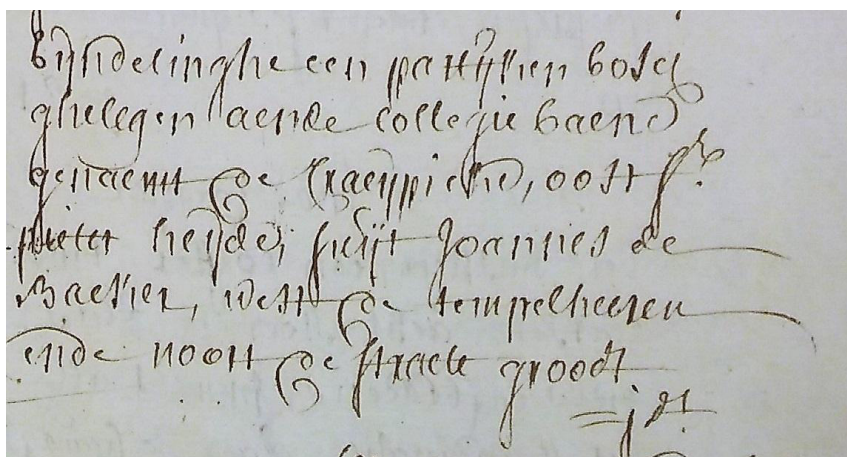 bijndelinghe een partijken bosch
ghelegen aende collegie baene
genaemt de Craeypiene, oost Sr
pieter heijde, suijt Joannes de
Backer, west de tempelheeren
ende noort de straete groodt